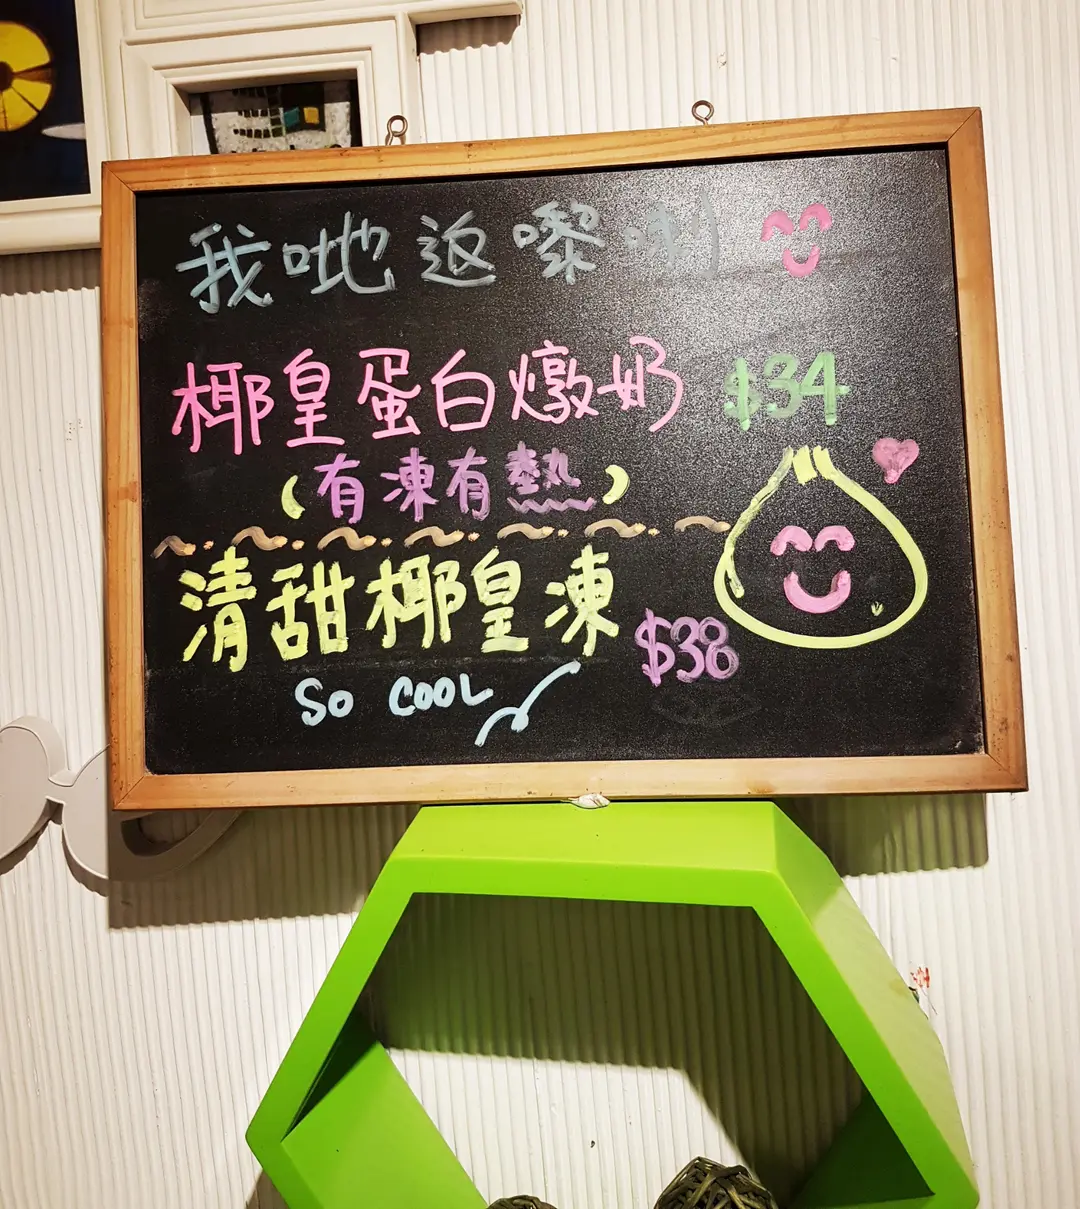 我哋返嚟喇
椰皇蛋白燉奶 $34
(有凍有熱)
清甜椰皇凍 $38
SO COOL